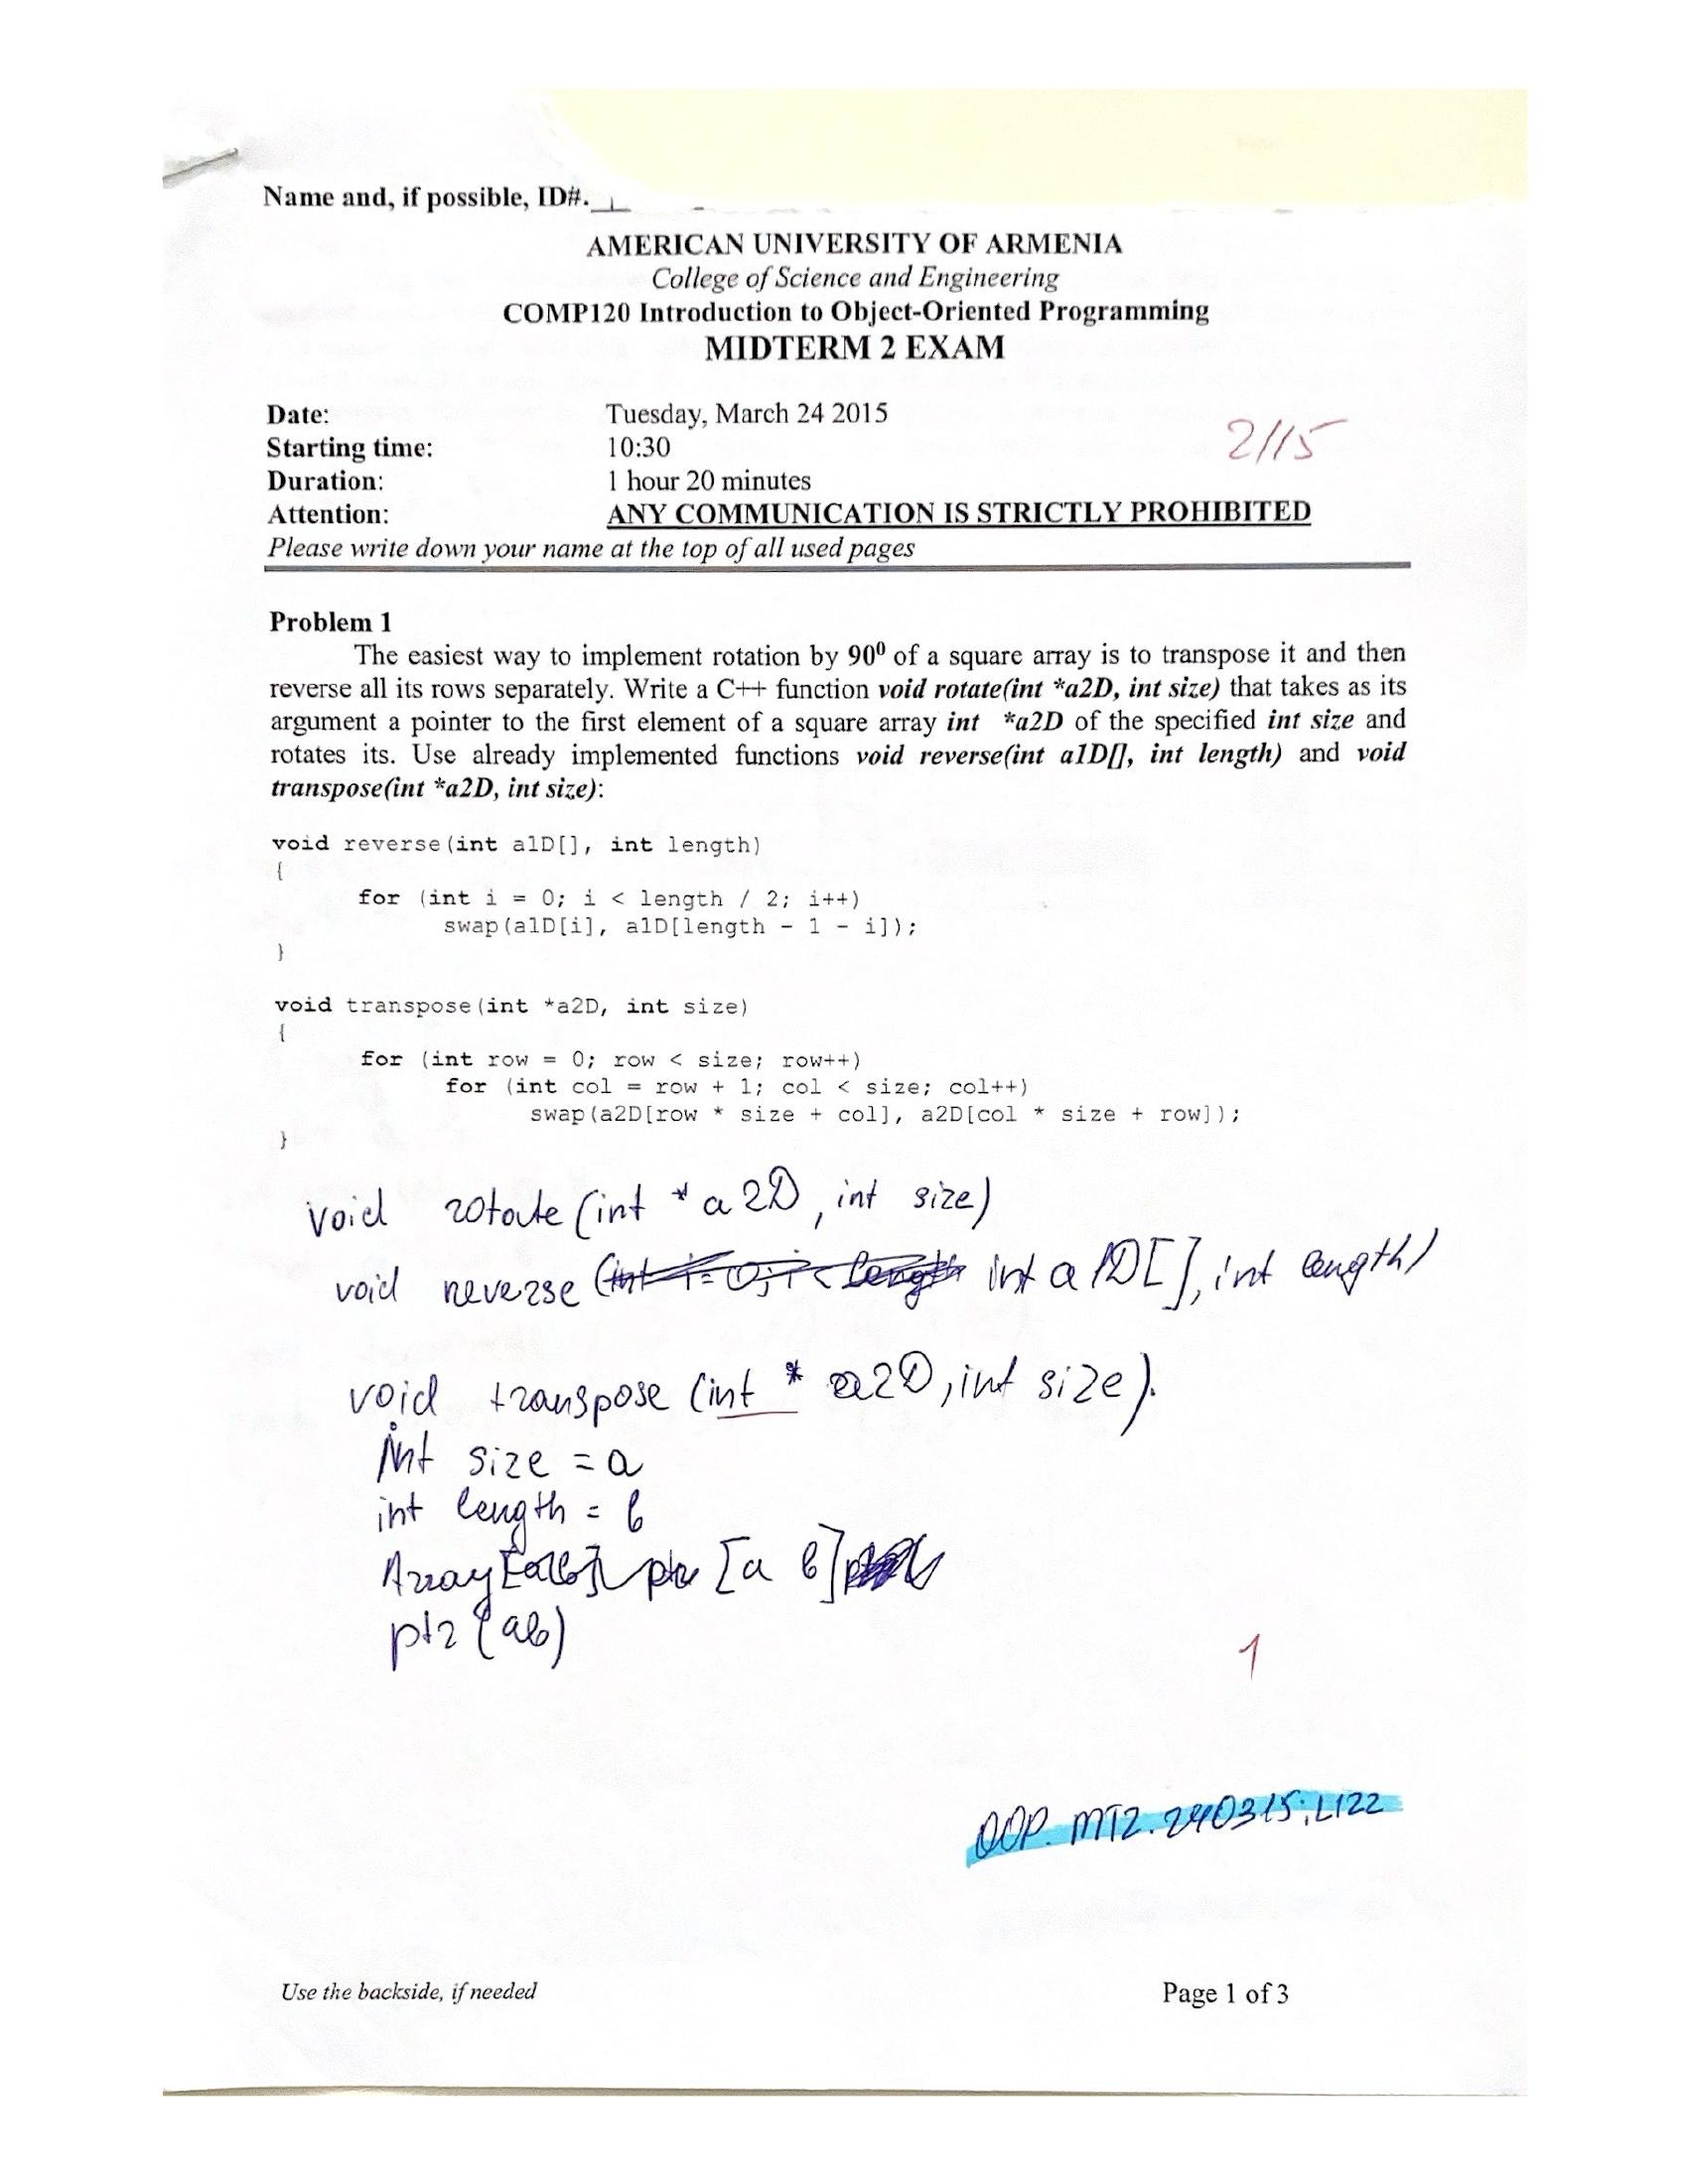 Name and, if possible, ID#.
AMERICAN UNIVERSITY OF ARMENIA
College of Science and Engineering
COMP120 Introduction to Object-Oriented Programming
MIDTERM 2 EXAM
Date: Tuesday, March 24 2015
2/15
Starting time: 10:30
Duration: 1 hour 20 minutes
Attention: ANY COMMUNICATION IS STRICTLY PROHIBITED
Please write down your name at the top of all used pages
Problem 1
The easiest way to implement rotation by 90⁰ of a square array is to transpose it and then
reverse all its rows separately. Write a C++ function void rotate(int *a2D, int size) that takes as its
argument a pointer to the first element of a square array int *a2D of the specified int size and
rotates its. Use already implemented functions void reverse(int a1D[], int length) and void
transpose(int *a2D, int size):
void reverse(int a1D[], int length)
{
for (int i = 0; i < length / 2; i++)
swap(a1D[i], a1D[length - 1 - i]);
}
void transpose(int *a2D, int size)
{
for (int row = 0; row < size; row++)
for (int col = row + 1; col < size; col++)
swap(a2D[row * size + col], a2D[col * size + row]);
}
void rotate (int * a2D, int size)
void reverse (int i = 0; i < length int a1D[], int length)
void transpose (int * a2D, int size).
int size = a
int length = b
Array ptr [a b]
ptr (ab)
1
OOP.MT2.240315.L122
Use the backside, if needed
Page 1 of 3